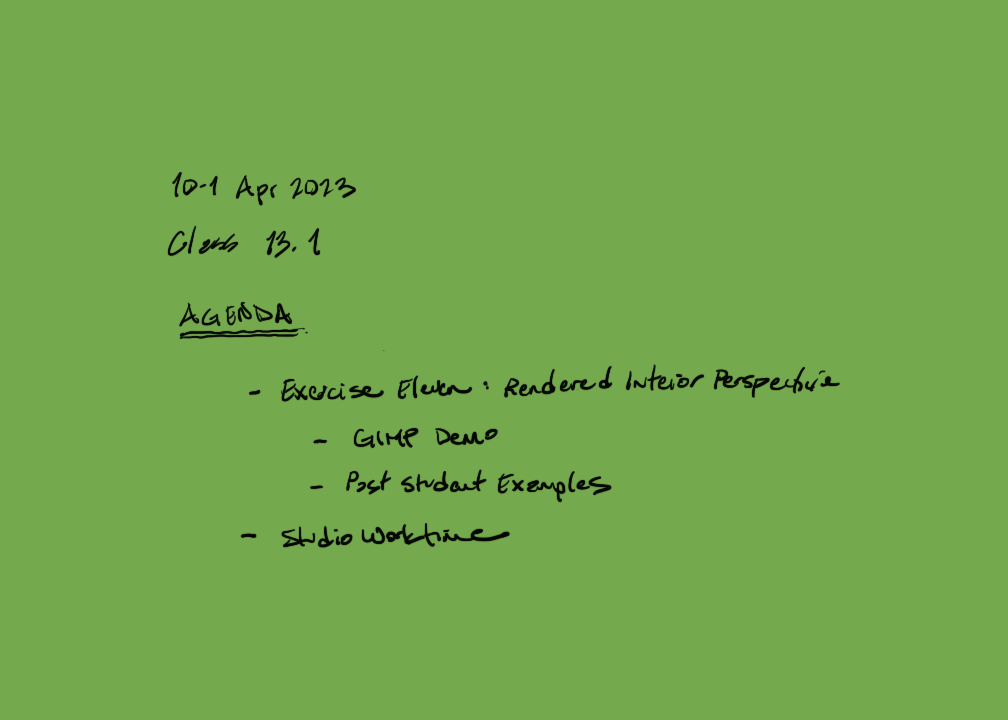 10-1 Apr 2023
Class 13.1
AGENDA
- Exercise Eleven : Rendered Interior Perspective
- GIMP Demo
- Past Student Examples
- Studio Worktime